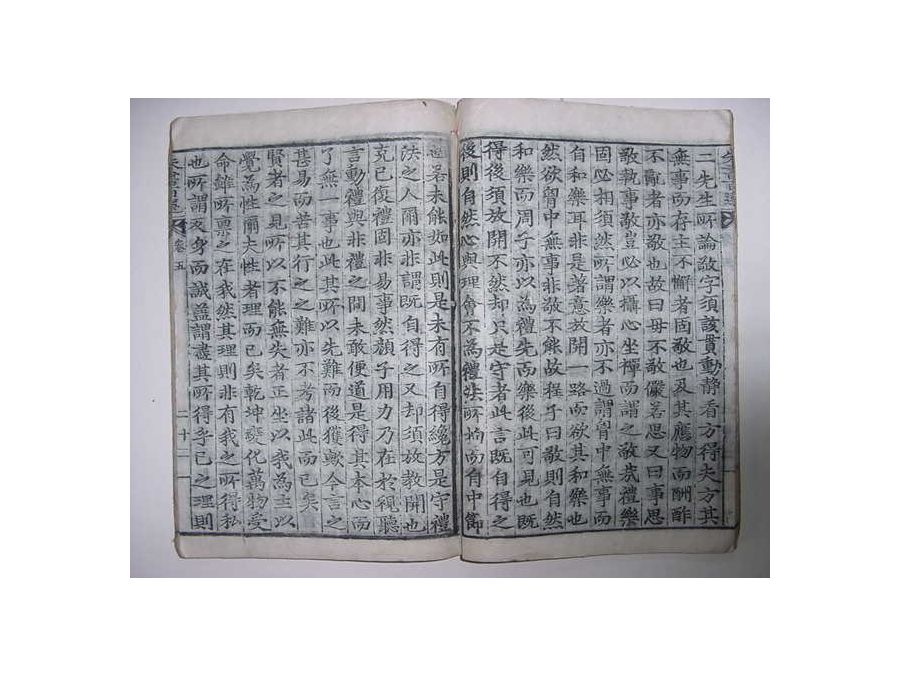 二先生所論敬字須該貫動靜看方得夫方其
無事而存主不懈者固敬也及其應物而酬酢
不亂者亦敬也故曰毋不敬儼若思又曰事思
敬執事敬豈必以攝心坐禪而謂之敬哉禮樂
固必相須然所謂樂者亦不過謂胷中無事而
自和樂耳非是著意放開一路而欲其和樂也
然欲胷中無事非敬不能故程子曰敬則自然
和樂而周子亦以為禮先而樂後此可見也既
得後須放開不然却只是守者此言既自得之
後則自然心與理會不為禮法所拘而自中節
也若未能如此則是未有所自得纔方是守禮
法之人爾亦非謂既自得之又却須放教開也
克已復禮固非易事然顏子用力乃在於視聽
言動禮與非禮之間未敢便道是得其本心而
了無一事也此其所以先難而後獲歟今言之
甚易而苦其行之之難亦不考諸此而已矣
賢者之見所以不能無失者正坐以我為主以
覺為性爾夫性者理而已矣乾坤變化萬物受
命雖所稟之在我然其理則非有我之所得私
也所謂反身而誠蓋謂盡其所得乎已之理則
卷五
二十二